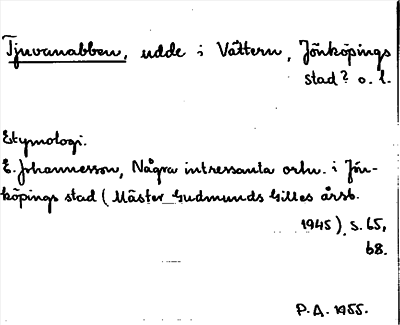 Tjuvanabben, udde i Vättern, Jönköpings
stad? o. l.
Etymologi.
E. Johannesson, Några intressanta ortn. i Jön-
köpings stad (Mäster Gudmunds Gilles årsb.
1945), s. 65,
68.
P.A. 1955.